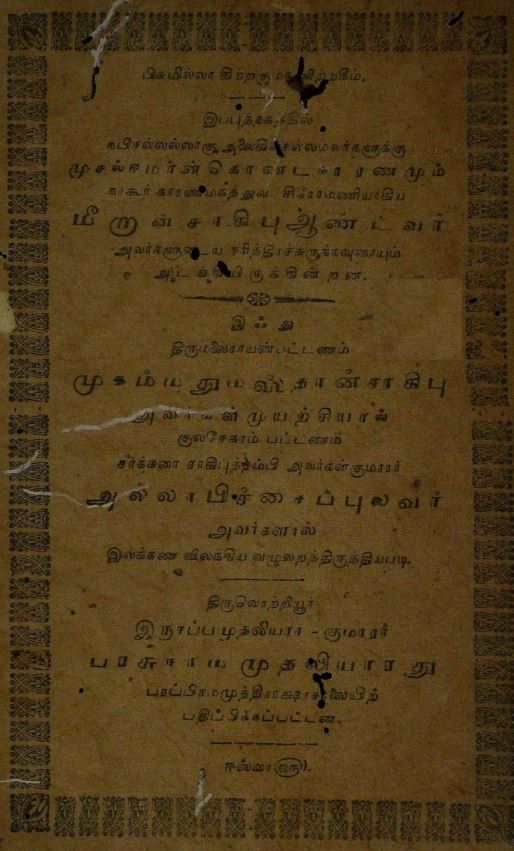 பிசுமில்லா கிற்றகுமானிற்றகீம்.
இப்புத்தகத்தில்
நபிசல்லல்லாகு அலைகிவசல்லமவர்களுக்கு
முசல்மான் கொண்ட காரணமும்
நாகூர் காரணமகத்துவ சிரோமணியாகிய
மீறான்சாகிபுஆண்டவர்
அவர்களுடைய சரித்திரச்சுருக்கவுரையும்
அடங்கியிருக்கின்றன.
இஃது
திருமலைராயன்பட்டணம்
முகம்மதுமஸ்தான்சாகிபு
அவர்கள்முயற்சியால்
குலசேகரம் பட்டணம்
சர்க்கரை சாகிபுத்தம்பி அவர்கள்குமாரர்
அல்லாபிச்சைப்புலவர்
அவர்களால்
இலக்கண விலக்கிய வழுவறத்திருத்தியபடி.
திருவொற்றியூர்
இருசப்பமுதலியார் - குமாரர்
பரசுராம முதலியாரது
பரப்பிரமமுத்திராக்ஷரசாலையிற்
பதிப்பிக்கப்பட்டன.
ஈஸ்வர